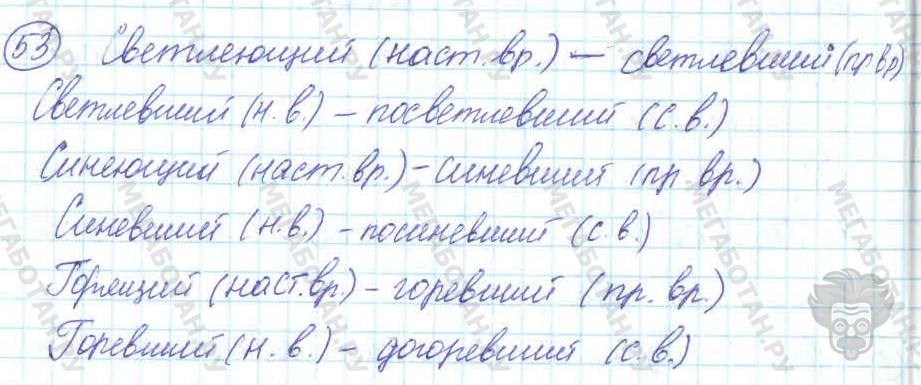 53 Светлеющий (наст. вр.) — светлевший (пр вр)
Светлевший (н.в.) – посветлевший (с.в.)
Синеющий (наст. вр.) – синевший (пр. вр.)
Синевший (н.в.) – посиневший (с.в.)
Горящий (наст. вр.) – горевший (пр. вр.)
Горевший (н.в.) – догоревший (с.в.)
МЕГАБОТАН.РУ